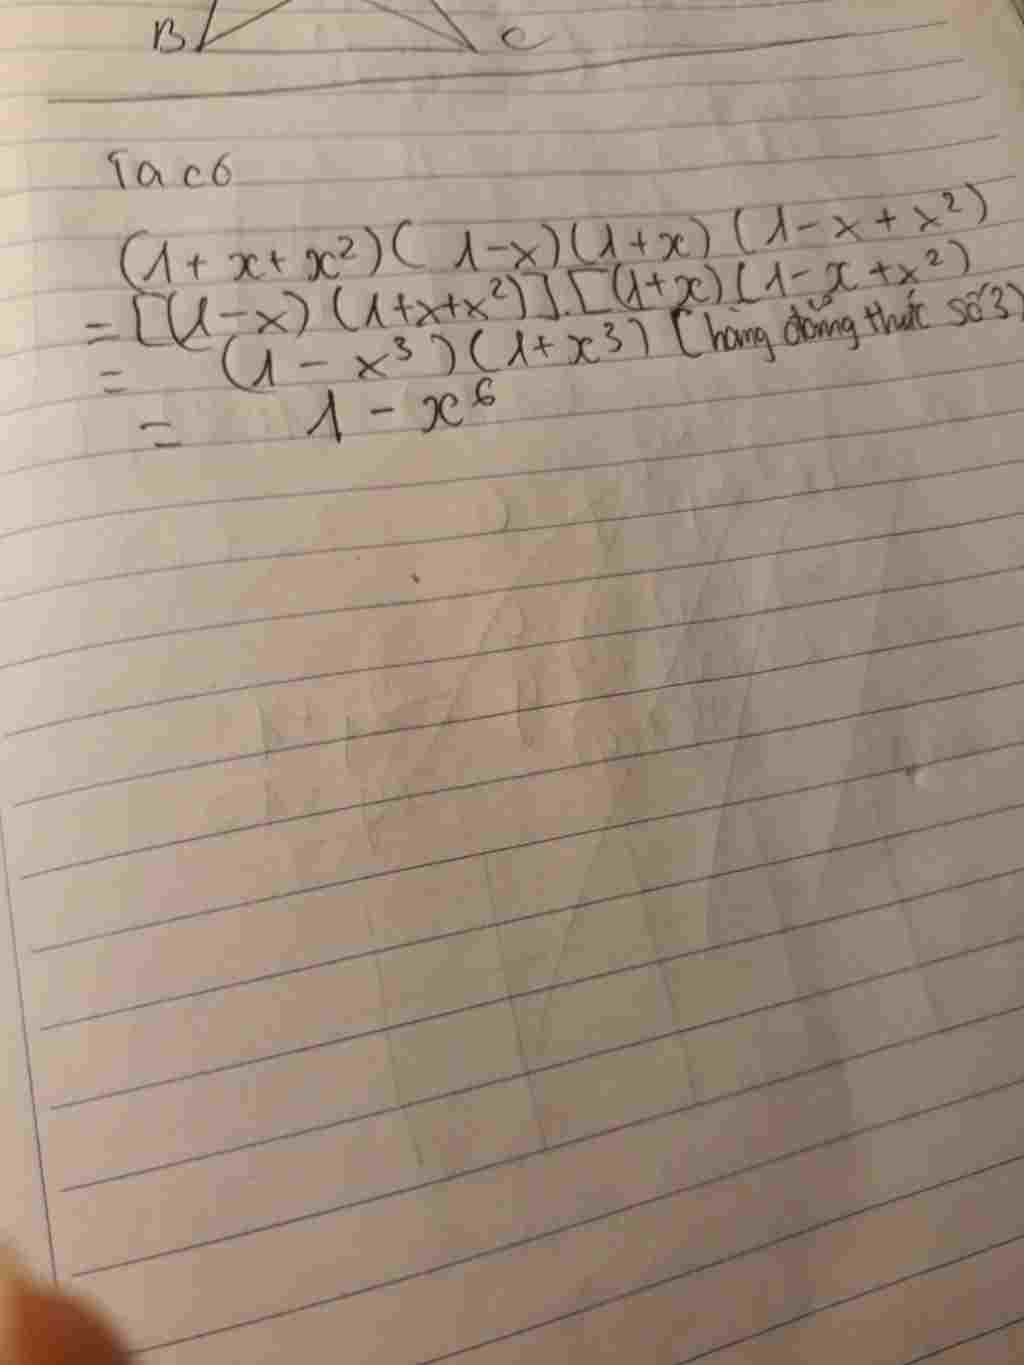 B C
Ta có
(1 + x + x²)( 1 - x)(1 + x) (1 - x + x²)
= [(1 - x) (1 + x + x²)].[(1 + x)(1 - x + x²)
= (1 - x³)(1 + x³) (hằng đẳng thức số 3)
= 1 - x⁶